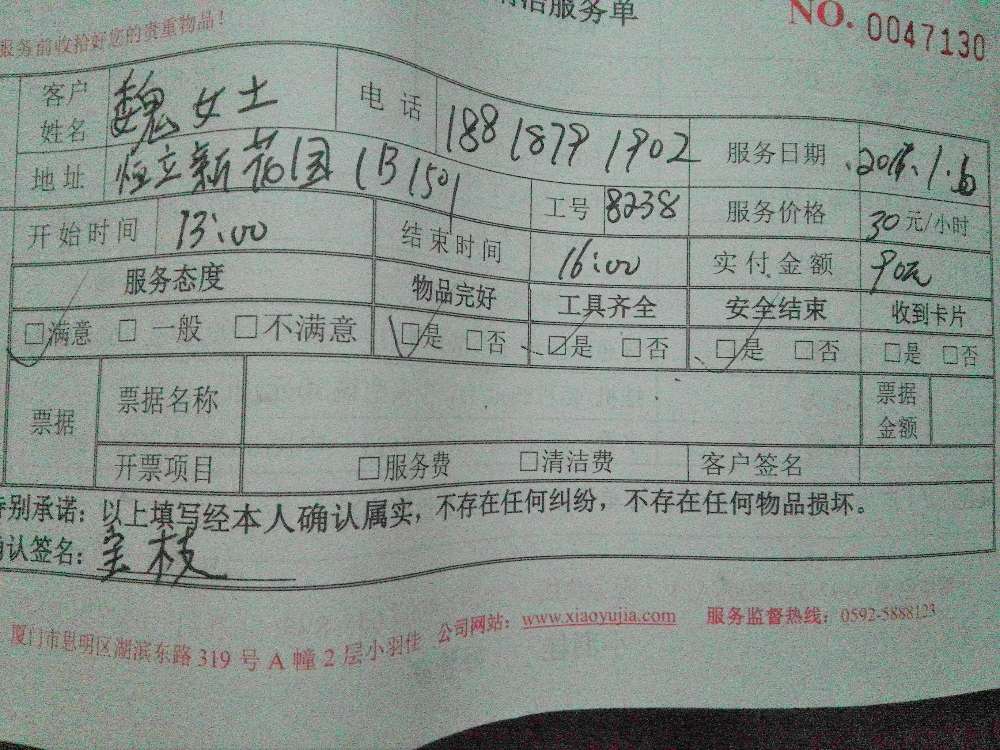 洁服务单
NO. 0047130
服务前收拾好您的贵重物品!
客户姓名 魏女士 电话 188 1879 1902 服务日期
地址 恒立新花园 1B 1501 工号 8238 服务价格 30 元/小时
开始时间 13:00 结束时间 16:00 实付金额 90元
服务态度 物品完好 工具齐全 安全结束 收到卡片
□满意 □一般 □不满意 □是 □否 □是 □否 □是 □否 □是 □否
票据 票据名称 票据金额
开票项目 □服务费 □清洁费 客户签名
别承诺:以上填写经本人确认属实,不存在任何纠纷,不存在任何物品损坏。
认签名:
厦门市思明区湖滨东路 319 号 A 幢 2 层小羽佳 公司网站:www.xiaoyujia.com 服务监督热线:0592-5888123